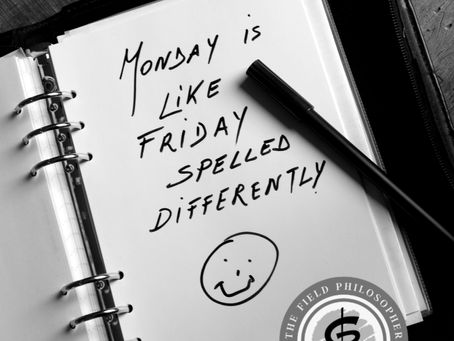 MONDAY is
LiKE
FRiDAY
SPELLED
DiFFERENTLY
THE FIELD PHILOSOPHER